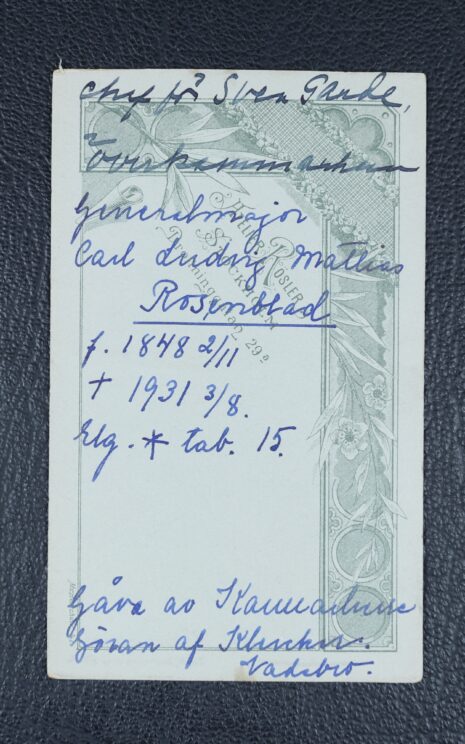 chef för Svea Garde,
Överkammarherre
Generalmajor
Carl Ludvig Mattias
Rosenblad
f. 1848 2/11
† 1931 3/8.
Elg. * tab. 15.
ATELIER ROESLER
STOCKHOLM
Drottninggatan 29B
Gåva av Kammarherre
Göran af Klercker.
Vadsbro.